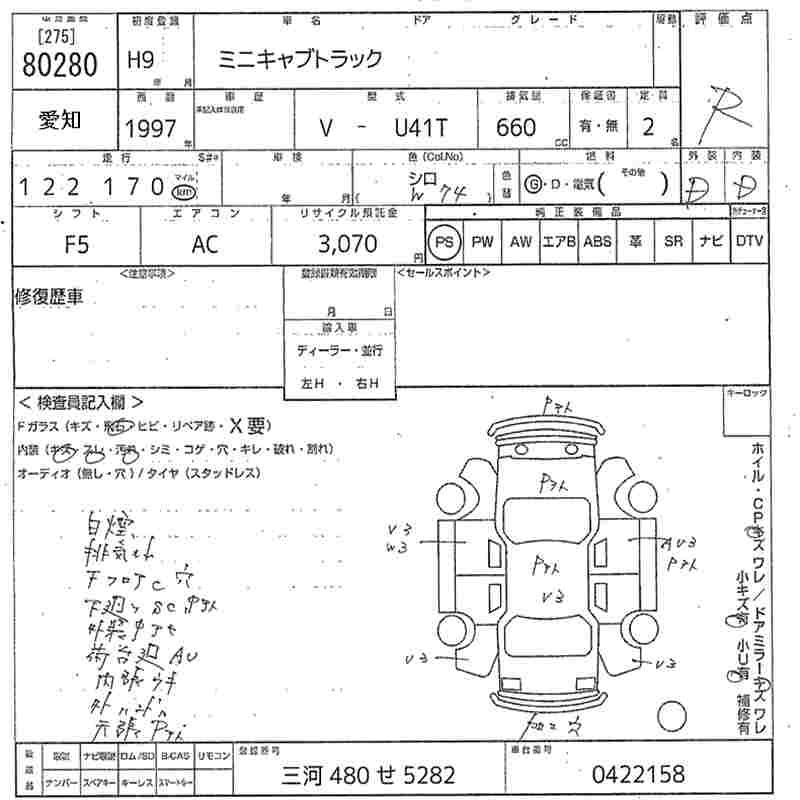 [275]
80280
初度登録
車名
ドア
グレード
評価点
H9
年 月
ミニキャブトラック
R
愛知
西暦
1997
年
車歴
型式
V - U41T
排気量
660
CC
保証書
有・無
定員
2
名
走行
S#*
122170
マイル
km
車検
年 月
色(Col.No)
シロ
W 74
色替
燃料
G・D・電気(その他 )
外装
D
内装
D
シフト
F5
エアコン
AC
リサイクル預託金
3,070
円
純正装備品
PS PW AW エアB ABS 革 SR ナビ DTV
<注意事項>
修復歴車
登録書類有効期限
月 日
輸入車
ディーラー・並行
左H ・ 右H
<セールスポイント>
キーロック
< 検査員記入欄 >
Fガラス(キズ・飛石・ヒビ・リペア跡・X要)
内装(キズ・スレ・汚れ・シミ・コゲ・穴・キレ・破れ・割れ)
オーディオ(無し・穴)/タイヤ(スタッドレス)
白煙
排気モレ
Fフロア C 穴
下廻り SC
荷台廻 AU
内張ウキ
天張
V3
W3
AU3
V3
U3
U3
穴
ホイル・CPキズ ワレ/ドアミラーキズ ワレ
小キズ有 小U有 補修有
取説 ナビ取説 ロム/SD B-CAS リモコン
ナンバー スペアキー キーレス スマートキー
登録番号
三河 480 せ 5282
車台番号
0422158